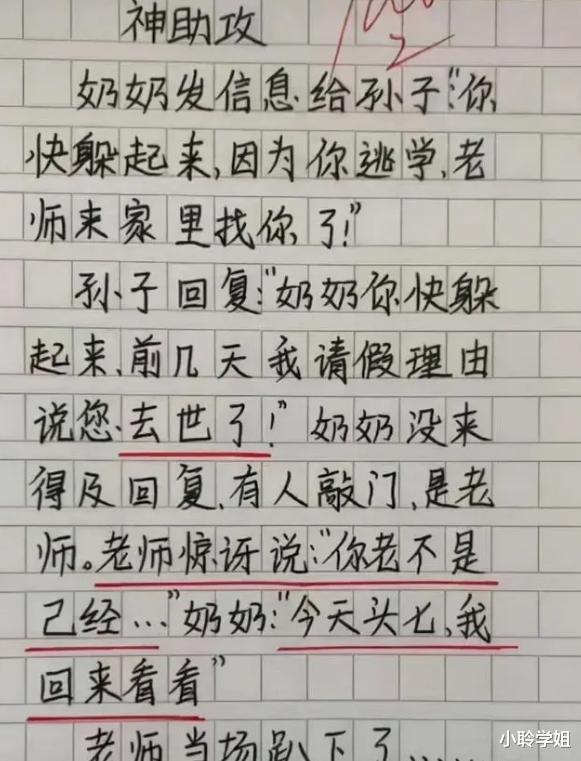 神助攻
奶奶发信息给孙子:“你
快躲起来,因为你逃学,老
师来家里找你了!”
孙子回复:“奶奶你快躲
起来,前几天我请假理由
说您去世了!”奶奶没来
得及回复,有人敲门,是老
师。老师惊讶说:“你老不是
已经…”奶奶:“今天头七,我
回来看看”
老师当场趴下了……
小聆学姐